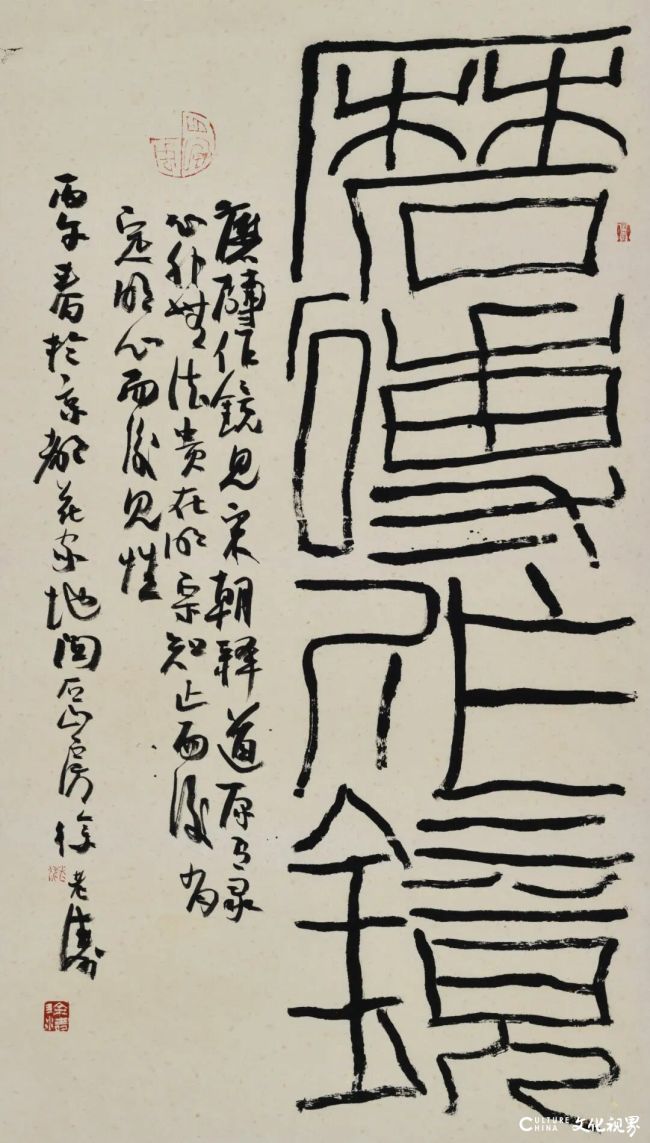 磨磚作鏡
磨磚作鏡見宋朝釋道原录
心外無法貴在明宗知止而後有
定明心而後見性
丙午春於京都花家地山房徐老濤
CULTURE CHINA 文化视界